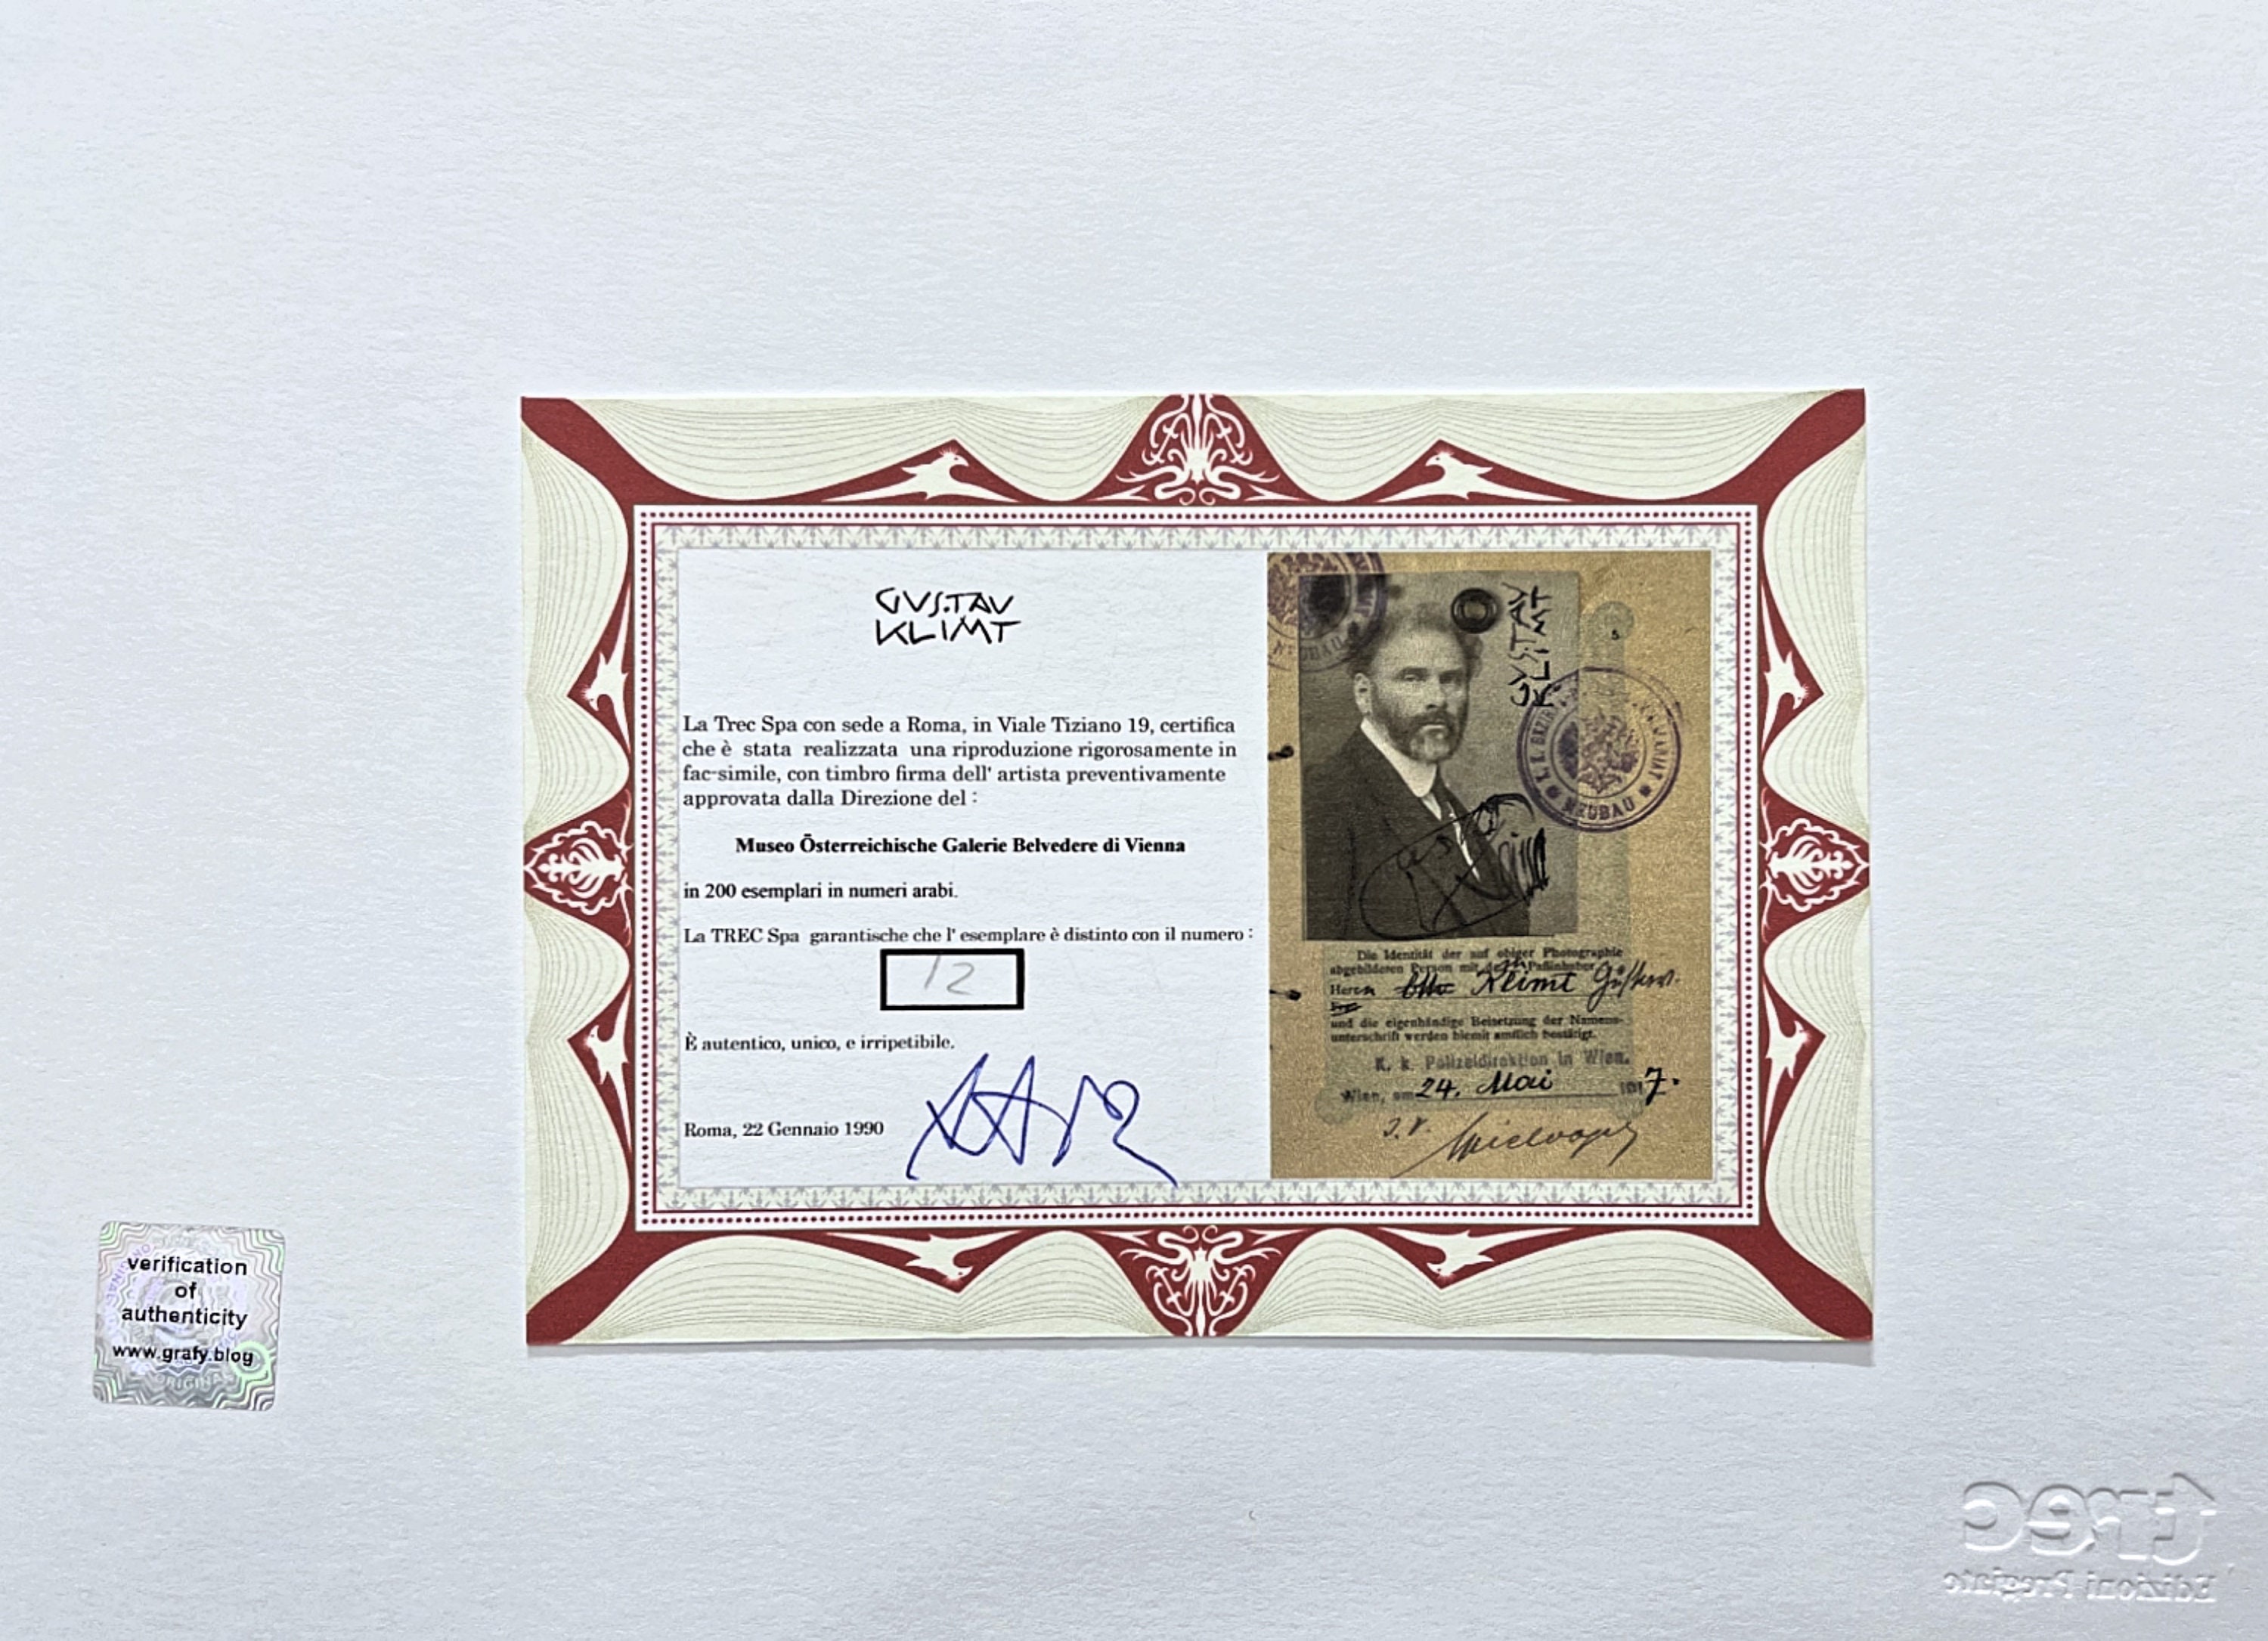 GUSTAV
KLIMT
La Trec Spa con sede a Roma, in Viale Tiziano 19, certifica
che è stata realizzata una riproduzione rigorosamente in
fac-simile, con timbro firma dell' artista preventivamente
approvata dalla Direzione del :
Museo Österreichische Galerie Belvedere di Vienna
in 200 esemplari in numeri arabi.
La TREC Spa garantische che l' esemplare è distinto con il numero :
12
È autentico, unico, e irripetibile.
Roma, 22 Gennaio 1990
GUSTAV
KLIMT
5
NEUBAU
NEUBAU
Die Identität der auf obiger Photographie
abgebilderen Person mit dem Paßinhaber
Herrn Klimt Gustav.
und die eigenhändige Beisetzung der Namens-
unterschrift werden hiemit amtlich bestätigt.
K. k. Polizeidirektion in Wien.
Wien, am 24. Mai 1917.
J. V.
verification
of
authenticity
www.grafy.blog
ORIGINAL
trec
Edizioni Pregiate